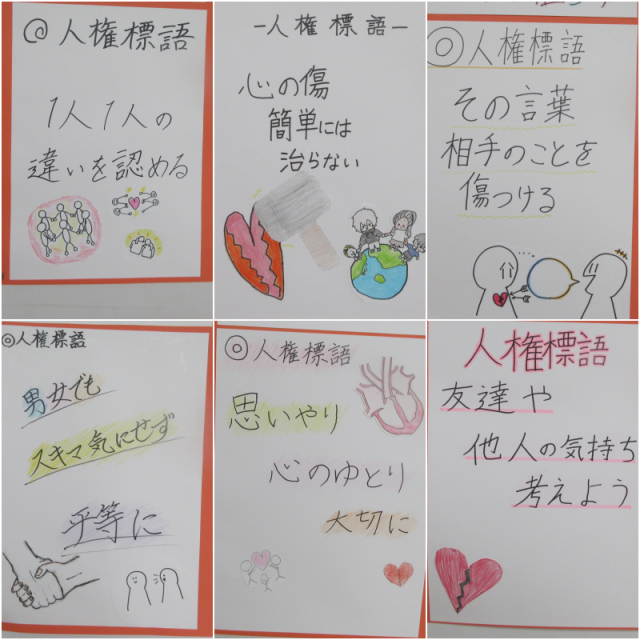 ◎人権標語
1人1人の
違いを認める
ー人権標語ー
心の傷
簡単には
治らない
◎人権標語
その言葉
相手のことを
傷つける
◎人権標語
男女でも
スキマ気にせず
平等に
◎人権標語
思いやり
心のゆとり
大切に
人権標語
友達や
他人の気持ち
考えよう